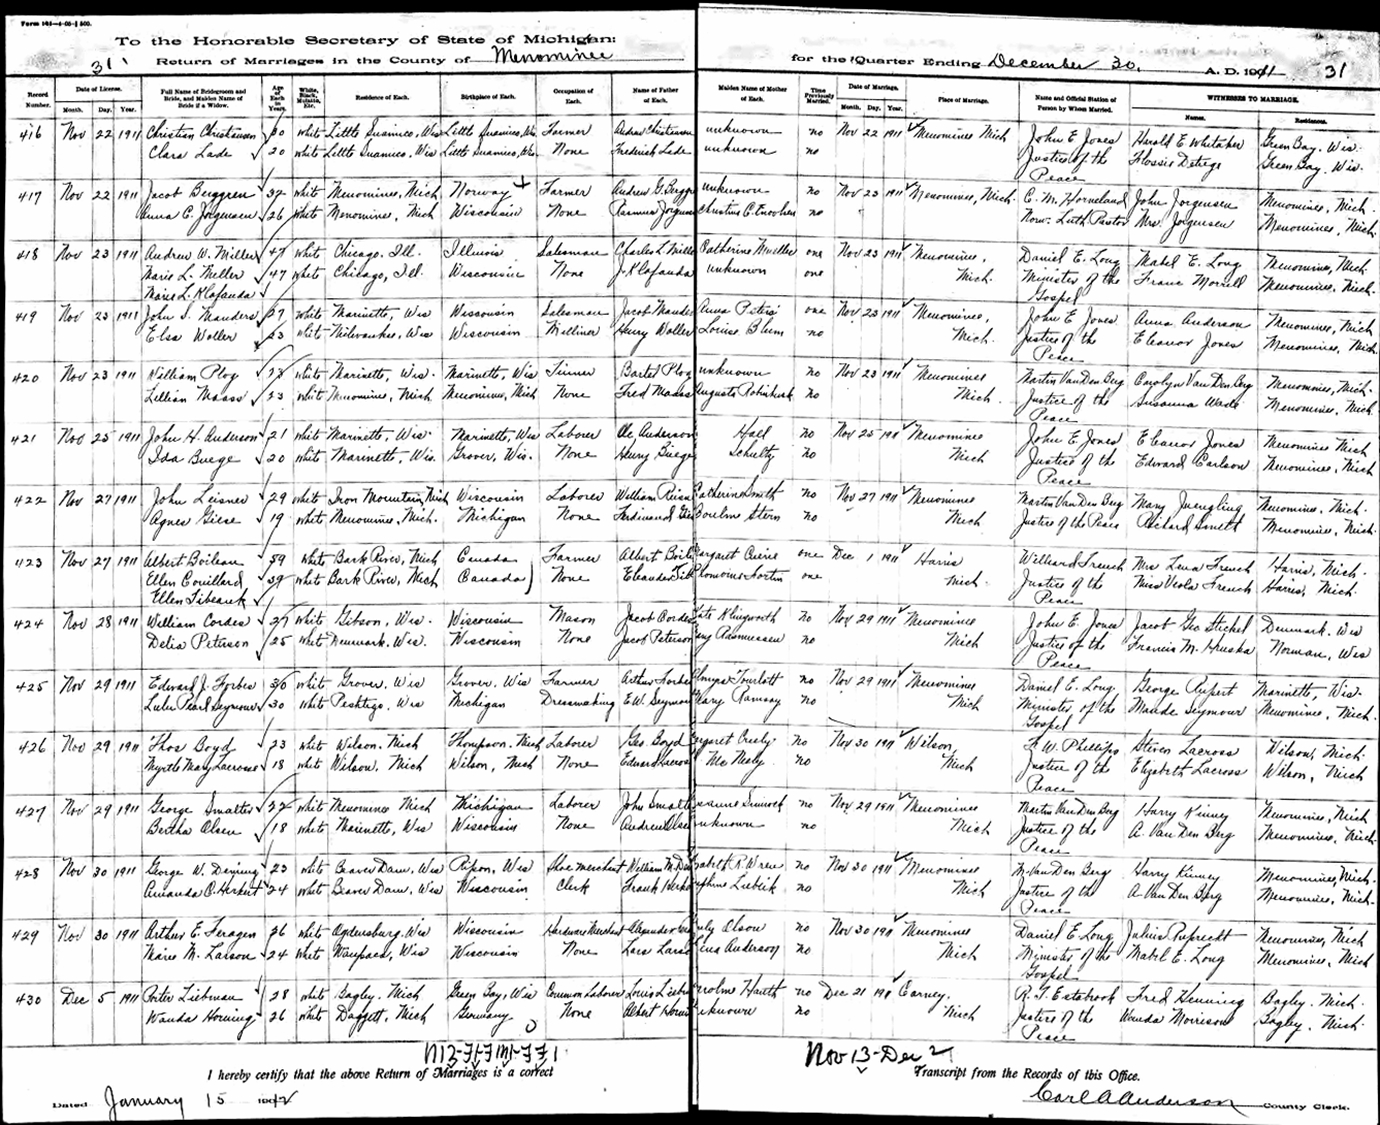 Form 195—4-08-1 500.
To the Honorable Secretary of State of Michigan:
31 Return of Marriages in the County of Menominee for the Quarter Ending December 30, A. D. 1911 31
Record Number. Date of License. Month. Day. Year. Full Name of Bridegroom and Bride, and Maiden Name of Bride if a Widow. Age of Each in Years. White, Black, Mulatto, Etc. Residence of Each. Birthplace of Each. Occupation of Each. Name of Father of Each. Maiden Name of Mother of Each. Time Previously Married. Date of Marriage. Month. Day. Year. Place of Marriage. Name and Official Station of Person by Whom Married. WITNESSES TO MARRIAGE. Names. Residences.
416 Nov 22 1911 Christian Christensen 30 white Little Suamico, Wis Little Suamico, Wis. Farmer Andrew Christensen unknown no Nov 22 1911 Menominee Mich John E Jones Harold E Whitaker Green Bay, Wis.
Clara Lade 20 white Little Suamico, Wis Little Suamico, Wis. None Frederick Lade unknown no Justice of the Peace Flossie Detege Green Bay, Wis.
417 Nov 22 1911 Jacob Berggren 32 white Menominee, Mich Norway Farmer Andrew G. Bergg unknown no Nov 23 1911 Menominee, Mich. C. M. Horneland John Jorgensen Menominee, Mich.
Anna C. Jorgensen 26 white Menominee, Mich Wisconsin None Rasmus Jorgen Christine C. no Norw. Luth Pastor Mrs. Jorgensen Menominee, Mich.
418 Nov 23 1911 Andrew W. Miller 47 white Chicago, Ill. Illinois Salesman Charles L. Mille Catherine Mueller one Nov 23 1911 Menominee, Daniel E. Long Mabel E. Long Menominee, Mich.
Marie L. Miller 47 white Chicago, Ill. Wisconsin None J. Klafanda unknown one Mich. Minister of the Gospel Franc Morrill Menominee, Mich.
Marie L. Klafanda
419 Nov 23 1911 John S. Manders 27 white Marinette, Wis Wisconsin Salesman Jacob Mande Anna Peters one Nov 23 1911 Menominee, John E Jones Anna Anderson Menominee, Mich
Elsa Woller 23 white Milwaukee, Wis Wisconsin Milliner Henry Woller Louise Blum no Mich. Justice of the Peace Eleanor Jones Menominee, Mich.
420 Nov 23 1911 William Plog 23 white Marinette, Wis. Marinette, Wis Tinner Bartel Plog unknown no Nov 23 1911 Menominee Martin Van Den Berg Carolyn Van Den Berg Menominee, Mich.
Lillian Maass 23 white Menominee, Mich Menominee, Mich None Fred Maass Augusta no Mich. Justice of the Peace Susanna Wade Menominee, Mich.
421 Nov 25 1911 John H. Anderson 21 white Marinette, Wis. Marinette, Wis Laborer Ole Anderson Hall no Nov 25 1911 Menominee John E. Jones Eleanor Jones Menominee Mich
Ida Buege 20 white Marinette, Wis. Grover, Wis. None Henry Buege Schultz no Mich Justice of the Peace Edward Carlson Menominee, Mich
422 Nov 27 1911 John Leisner 29 white Iron Mountain, Mich Wisconsin Laborer William Catherine Smith no Nov 27 1911 Menominee Martin Van Den Berg Mary Juengling Menominee, Mich.
Agnes Giese 19 white Menominee, Mich. Michigan None Ferdinand Gie Stern no Mich Justice of the Peace Richard Smett Menominee, Mich.
423 Nov 27 1911 Albert Boileau 59 white Bark River, Mich Canada Farmer Albert Boile one Dec 1 1911 Harris Williard French Mrs Lena French Harris, Mich.
Ellen Couillard 39 white Bark River, Mich Canada None Fortin one Mich. Justice of the Peace Miss Viola French Harris, Mich.
Ellen Tibeault
424 Nov 28 1911 William Cordes 27 white Gibson, Wis. Wisconsin Mason Jacob Cordes Kate Klingworth no Nov 29 1911 Menominee John E. Jones Jacob Geo Stickel Denmark, Wis
Delia Peterson 25 white Denmark, Wis. Wisconsin None Jacob Peterson Rasmussen no Mich Justice of the Peace Francis M. Hruska Norman, Wis
425 Nov 29 1911 Edward J. Forbes 30 white Grover, Wis Grover, Wis Farmer Arthur Forbe Tourlott no Nov 29 1911 Menominee Daniel E. Long. George Rupert Marinette, Wis.
Lulu Pearl Seymour 30 white Peshtigo, Wis Michigan Dressmaking E.W. Seymou Mary Ramsay no Mich Minister of the Gospel Maude Seymour Menominee, Mich.
426 Nov 29 1911 Thos Boyd 23 white Wilson, Mich Thompson, Mich Laborer Geo. Boyd no Nov 30 1911 Wilson, F. W. Phillips Steven Lacross Wilson, Mich.
Myrtle Mary Lacrosse 18 white Wilson, Mich Wilson, Mich None Edward Lacros Mc Neely no Mich Justice of the Peace Elizabeth Lacross Wilson, Mich
427 Nov 29 1911 George Smalter 22 white Menominee Mich Michigan Laborer John Smalte no Nov 29 1911 Menominee Martin Van Den Berg Harry Kinney Menominee, Mich
Bertha Olsen 18 white Marinette, Wis Wisconsin None Andrew Olse unknown no Mich Justice of the Peace A. Van Den Berg Menominee, Mich.
428 Nov 30 1911 George W. Deining 23 white Beaver Dam, Wis Ripon, Wis Shoe merchant William M. De R. Wren no Nov 30 1911 Menominee M. Van Den Berg Harry Kinney Menominee, Mich.
Amanda O. Herbert 24 white Beaver Dam, Wis Wisconsin Clerk Frank no Mich Justice of the Peace A Van Den Berg Menominee, Mich.
429 Nov 30 1911 Arthur E. Feragen 26 white Ogdensburg, Wis Wisconsin Hardware Merchant Alexander Olson no Nov 30 1911 Menominee Daniel E. Long Julius Ruprecht Menominee, Mich
Marie M. Larson 24 white Waupaca, Wis Wisconsin None Lars Larso Lena Anderson no Mich Minister of the Gospel Mabel E. Long Menominee, Mich
430 Dec 5 1911 Porter Liebman 28 white Bagley, Mich Green Bay, Wis Common Laborer Louis Hauth no Dec 21 1911 Carney, R. T. Estabrook Fred Henning Bagley, Mich.
Wanda Horning 26 white Daggett, Mich Germany None Albert unknown no Mich Justice of the Peace Wanda Morrison Bagley, Mich.
Nov 13-Dec 2
I hereby certify that the above Return of Marriages is a correct Transcript from the Records of this Office.
Dated January 15 1912 Carl A Anderson County Clerk.